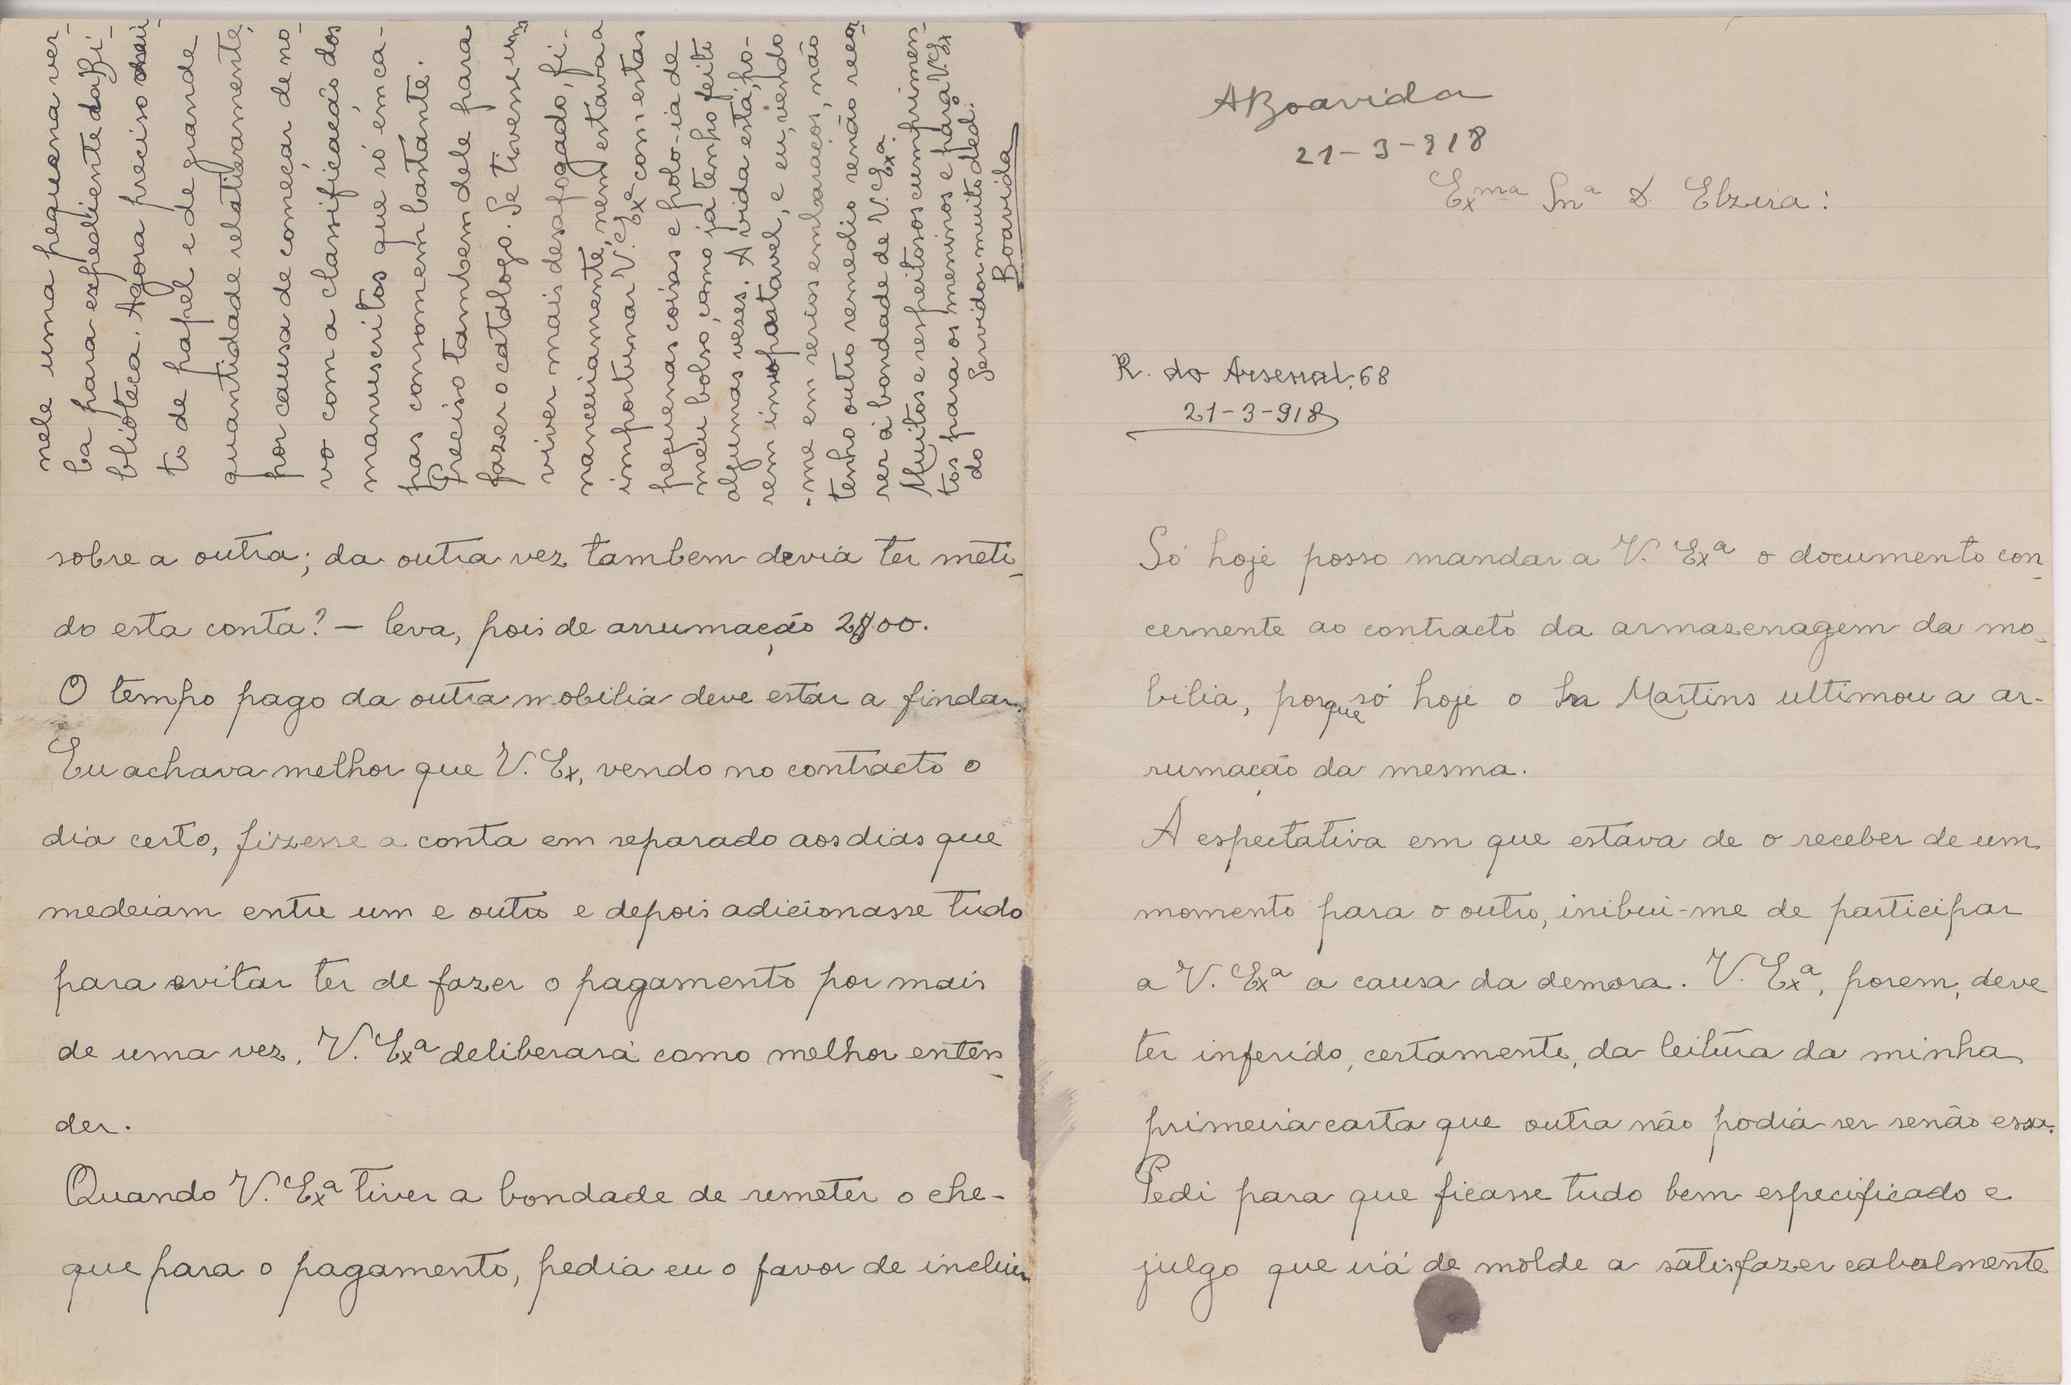 ABoavida
21-3-918
Exma Snra D. Elzira:
R. do Arsenal, 68
21-3-918
Só hoje posso mandar a V. Exª o documento con-
cernente ao contracto da armazenagem da mo-
bilia, porque só hoje o Sr Martins ultimou a ar-
rumação da mesma.
A espectativa em que estava de o receber de um
momento para o outro, inibui-me de participar
a V. Exª a causa da demora. V. Exª, porem, deve
ter inferido, certamente, da leitura da minha
primeira carta que outra não podia ser senão essa.
Pedi para que ficasse tudo bem especificado e
julgo que irá de molde a satisfazer cabalmente
sobre a outra; da outra vez tambem devia ter meti-
do esta conta? — leva, pois de arrumação 2$00.
O tempo pago da outra mobilia deve estar a findar.
Eu achava melhor que V. Ex, vendo no contracto o
dia certo, fizesse a conta em separado aos dias que
medeiam entre um e outro e depois adicionasse tudo
para evitar ter de fazer o pagamento por mais
de uma vez. V. Exª deliberará como melhor enten-
der.
Quando V. Exª tiver a bondade de remeter o che-
que para o pagamento, pedia eu o favor de incluir
nele uma pequena ver-
ba para expediente da Bi-
blioteca. Agora preciso mui-
to de papel e de grande
quantidade relativamente,
por causa de começar de no-
vo com a classificação dos
manuscritos que só em ca-
pas consomem bastante.
Preciso tambem dele para
fazer o catálogo. Se tivessemos
viver mais desafogado, fi-
nanceiamente, nem estava a
importunar V. Exª com estas
pequenas coisas e polo-ia de
meu bolso, como já tenho feito
algumas vezes. A vida está, po-
rem insuportavel, e eu, vendo
-me em serios embaraços, não
tenho outro remedio senão recor-
rer á bondade de V. Exª.
Muitos e respeitosos cumprimen-
tos para os meninos e para V. Ex
do Servidor muito ded.
Boavida